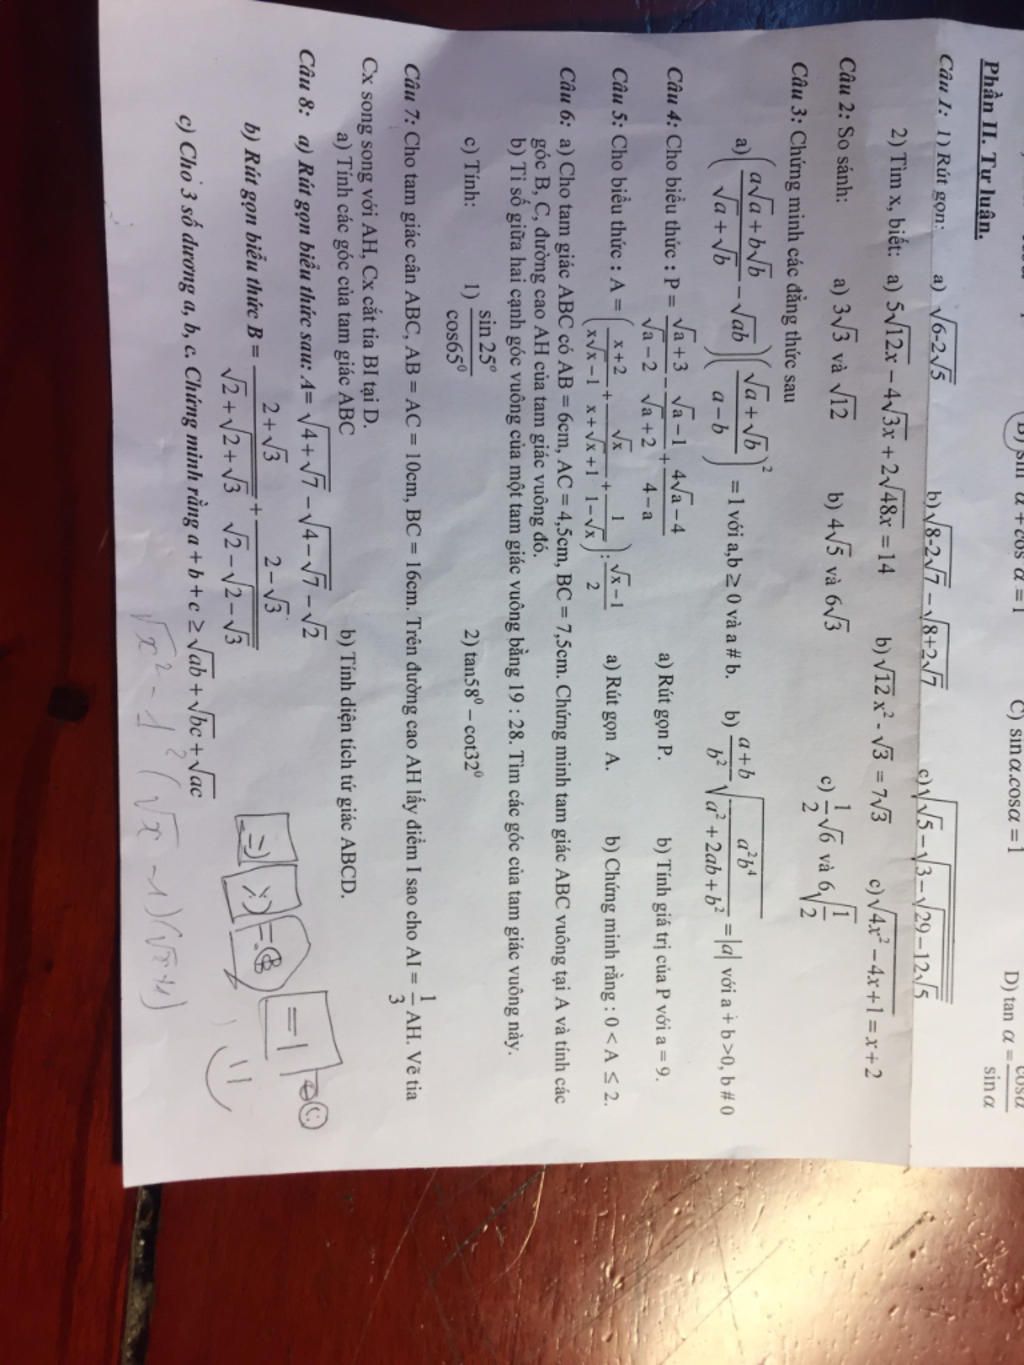 B) sin α + cos α = 1 C) sinα.cosα = 1 D) tan α = cosα / sin α
Phần II. Tự luận.
Câu 1: 1) Rút gọn: a) √(6-2√5) b) √(8-2√7) − √(8+2√7) c) √(√5 − √(3 − √(29 − 12√5)))
2) Tìm x, biết: a) 5√(12x) − 4√(3x) + 2√(48x) = 14 b) √12 x² - √3 = 7√3 c) √(4x² − 4x + 1) = x + 2
Câu 2: So sánh: a) 3√3 và √12 b) 4√5 và 6√3 c) 1/2 √6 và 6√(1/2)
Câu 3: Chứng minh các đẳng thức sau
a) ((a√a + b√b)/(√a + √b) − √(ab)) ((√a + √b)/(a − b))² = 1 với a,b ≥ 0 và a # b. b) (a+b)/b² √(a²b⁴/(a² + 2ab + b²)) = |a| với a + b >0, b # 0
Câu 4: Cho biểu thức : P = (√a + 3)/(√a − 2) − (√a − 1)/(√a + 2) + (4√a − 4)/(4 − a) a) Rút gọn P. b) Tính giá trị của P với a = 9.
Câu 5: Cho biểu thức : A = ((x + 2)/(x√x − 1) + √x/(x + √x + 1) + 1/(1 − √x)) : (√x − 1)/2 a) Rút gọn A. b) Chứng minh rằng : 0 < A ≤ 2.
Câu 6: a) Cho tam giác ABC có AB = 6cm, AC = 4,5cm, BC = 7,5cm. Chứng minh tam giác ABC vuông tại A và tính các
góc B, C, đường cao AH của tam giác vuông đó.
b) Tỉ số giữa hai cạnh góc vuông của một tam giác vuông bằng 19 : 28. Tìm các góc của tam giác vuông này.
c) Tính: 1) sin 25⁰ / cos65⁰ 2) tan58⁰ − cot32⁰
Câu 7: Cho tam giác cân ABC, AB = AC = 10cm, BC = 16cm. Trên đường cao AH lấy điểm I sao cho AI = 1/3 AH. Vẽ tia
Cx song song với AH, Cx cắt tia BI tại D.
a) Tính các góc của tam giác ABC b) Tính diện tích tứ giác ABCD.
Câu 8: a) Rút gọn biểu thức sau: A= √(4 + √7) − √(4 − √7) − √2
b) Rút gọn biểu thức B = (2 + √3)/(√2 + √(2 + √3)) + (2 − √3)/(√2 − √(2 − √3))
c) Cho 3 số dương a, b, c. Chứng minh rằng a + b + c ≥ √ab + √bc + √ac
√x² − 1² (√x − 1)(√x+1)